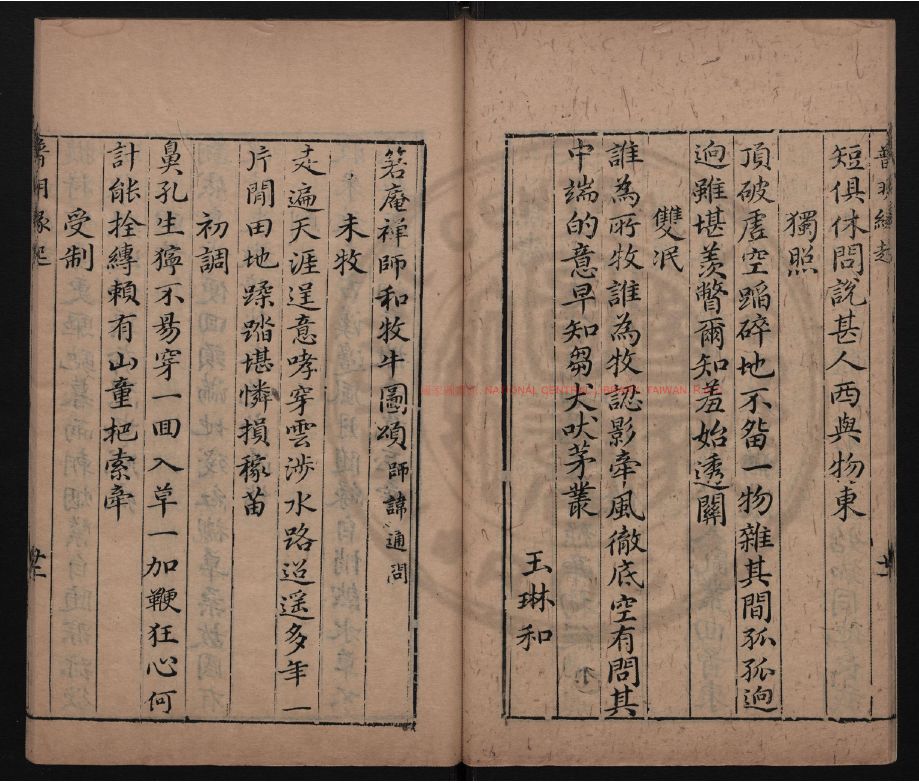 短俱休問說甚人西與物東
獨照
頂破虛空蹋碎地不畱一物雜其間孤孤逈
逈雖堪羨瞥爾知羞始透關
雙泯
誰為所牧誰為牧認影牽風徹底空有問其
中端的意早知芻犬吠茅叢
玉琳和
箬庵禪師和牧牛圖頌師諱通問
未牧
走遍天涯逞意哮穿雲涉水路迢遥多年一
片閒田地蹂踏堪憐損稼苗
初調
鼻孔生獰不易穿一回入草一加鞭狂心何
計能拴縛賴有山童把索牽
受制
NATIONAL CENTRAL LIBRARY, TAIWAN, R.O.C.